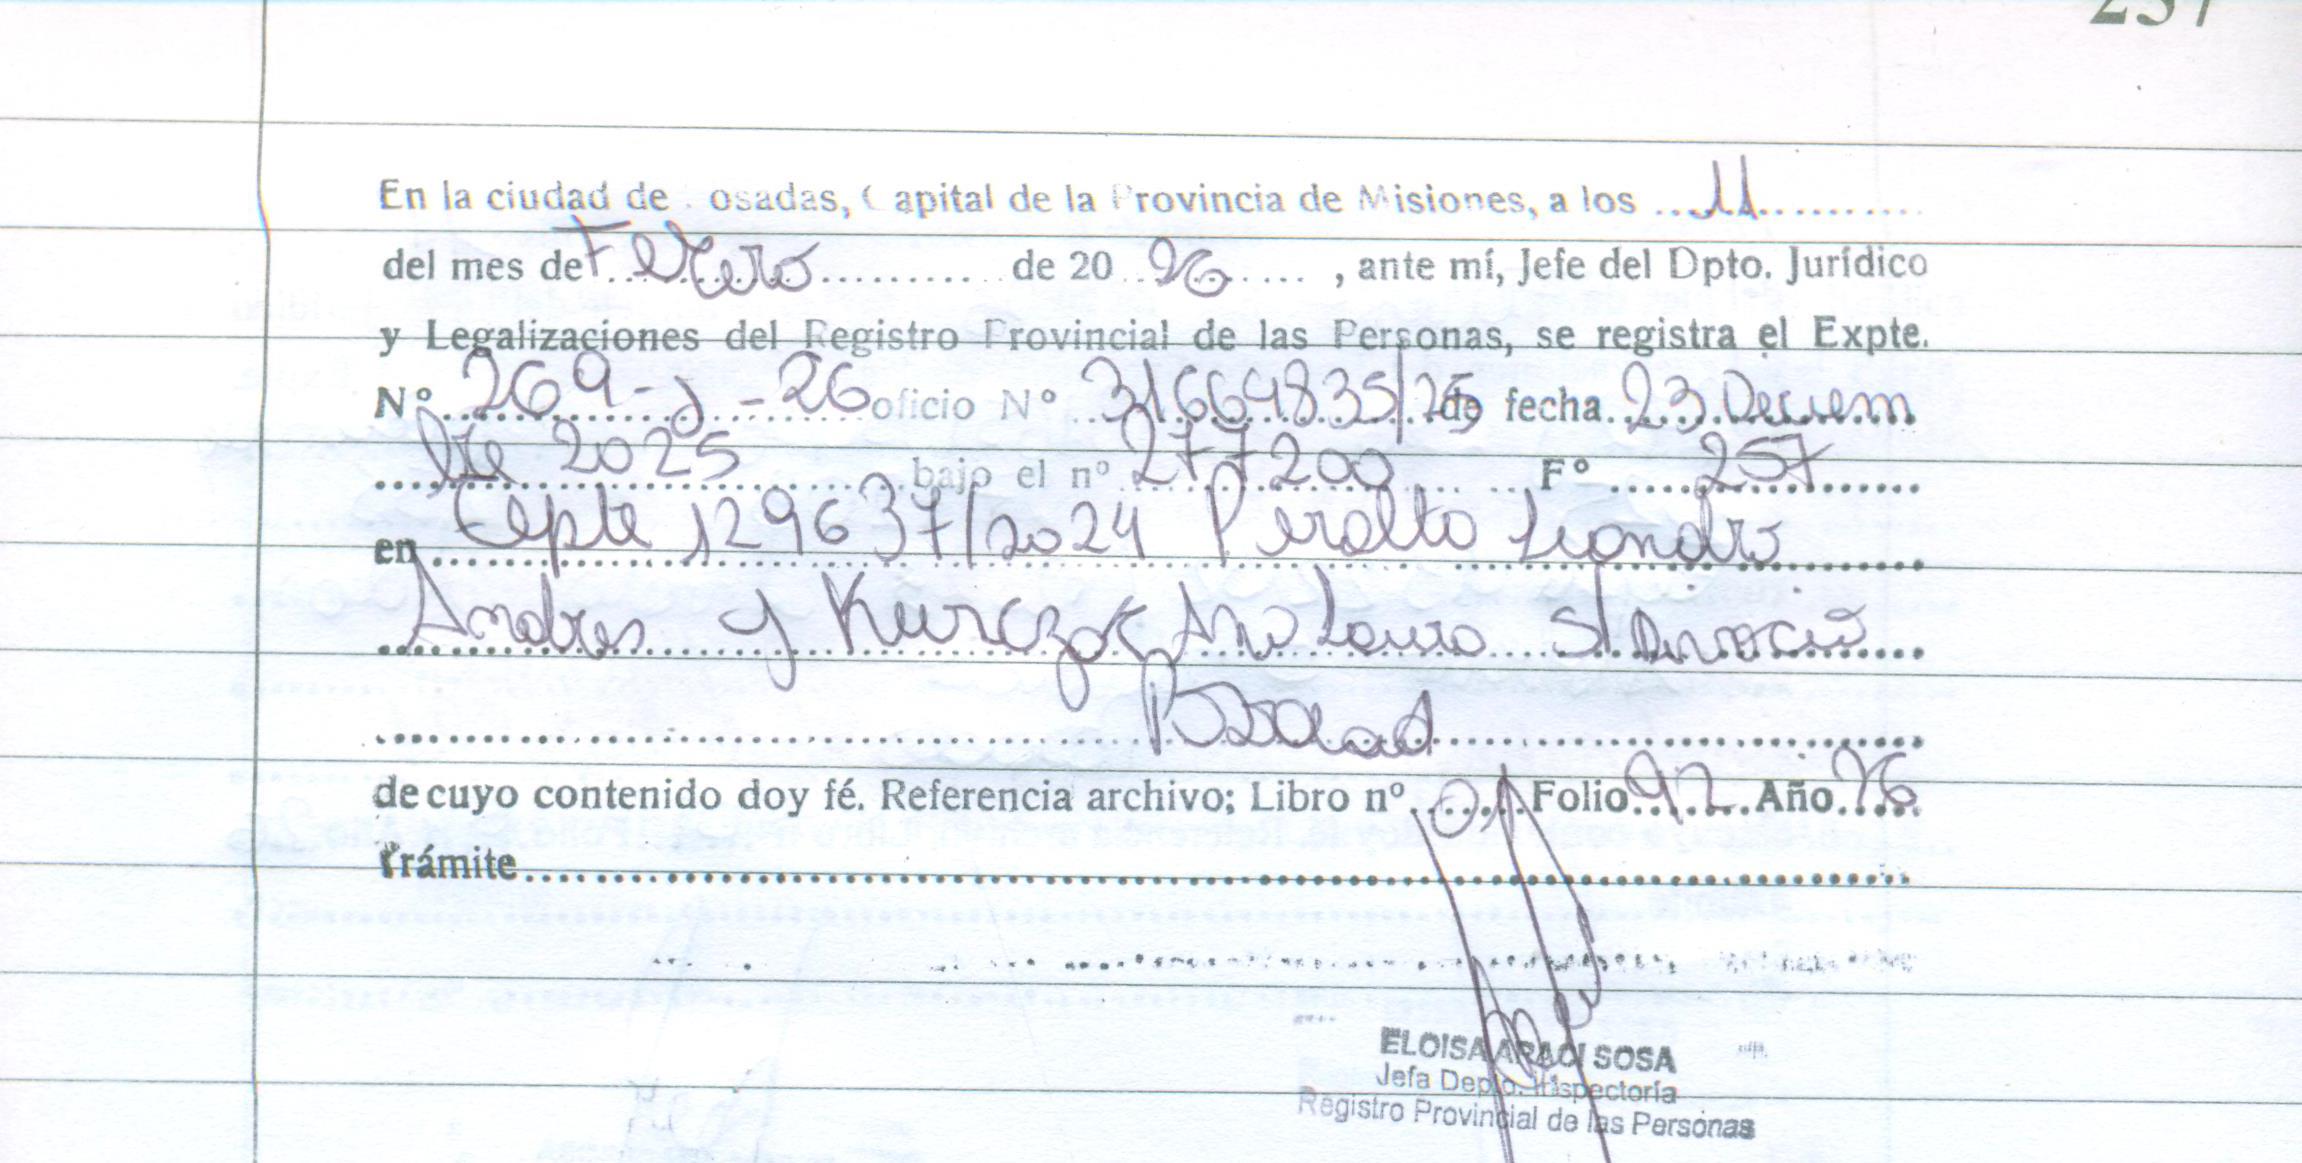 257
En la ciudad de Posadas, Capital de la Provincia de Misiones, a los 11
del mes de Febrero de 20 26, ante mí, Jefe del Dpto. Jurídico
y Legalizaciones del Registro Provincial de las Personas, se registra el Expte.
Nº 269-J-26 oficio Nº 31664835/25 de fecha 23 Deciem
bre 2025 bajo el nº 277200 Fº 257
en Expte 129637/2024 Peralta Leandro
Andres y Kurczok Ana Laura S/ Divorcio
de cuyo contenido doy fé. Referencia archivo; Libro nº 01 Folio 92 Año 26
Trámite
ELOISA ARACI SOSA
Jefa Depto. Inspectoría
Registro Provincial de las Personas